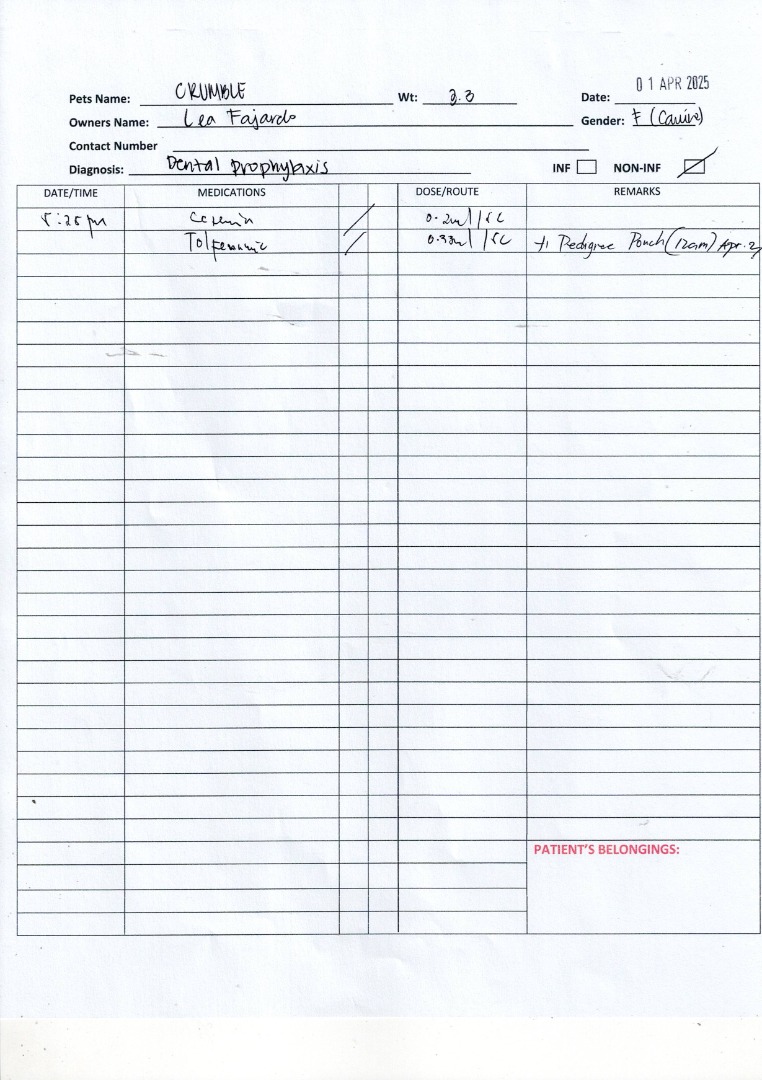 Pets Name: CRUMBLE Wt: 3.3 Date: 01 APR 2025
Owners Name: Lea Fajardo Gender: F (Canine)
Contact Number
Diagnosis: Dental prophylaxis INF NON-INF
DATE/TIME MEDICATIONS DOSE/ROUTE REMARKS
Cerenia 0.2ml / SC
Tolfenamic 0.33ml / SC Pedigree Pouch (12am) Apr. 2
PATIENT'S BELONGINGS: